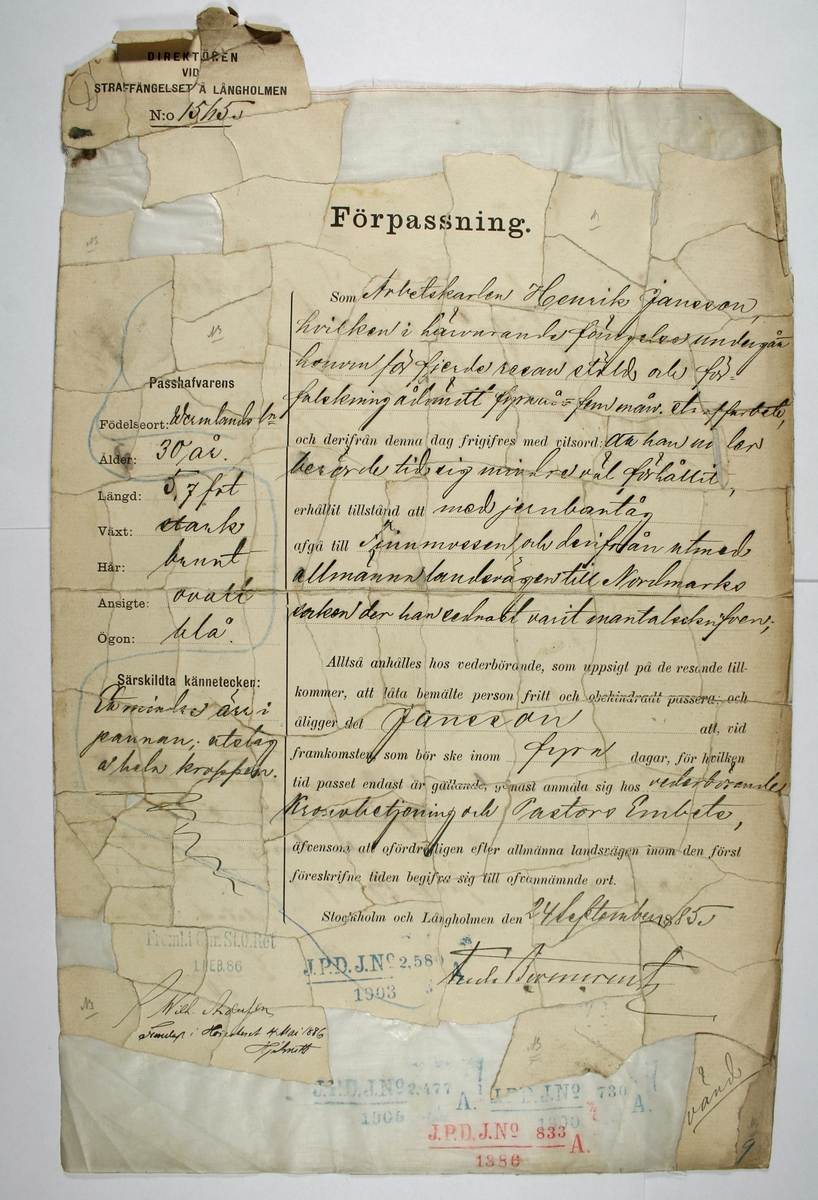 DIREKTÖREN
VID
STRAFFÄNGELSET Å LÅNGHOLMEN
N:o 1565
Förpassning.
Som Arbetskarlen Henrik Jansson,
hvilken i härvarande fängelse undergått
honom för fjerde resan stöld och för-
falskning ådömdt fyra år fem mån. straffarbete,
och derifrån denna dag frigifves med vitsord: att han under
berörde tid sig mindre väl förhållit,
erhållit tillstånd att med jernbantåg
afgå till Finnmossen och derifrån utmed
allmänna landsvägen till Nordmarks
socken der han sednast varit mantalsskrifven;
Alltså anhålles hos vederbörande, som uppsigt på de resande till-
kommer, att låta bemälte person fritt och obehindradt passera; och
åligger det Jansson att, vid
framkomsten, som bör ske inom fyra dagar, för hvilken
tid passet endast är gällande, genast anmäla sig hos vederbörande
Kronobetjening och Pastors Embete,
äfvensom att ofördröjligen efter allmänna landsvägen inom den först
föreskrifne tiden begifva sig till ofvannämnde ort.
Stockholm och Långholmen den 24 September 1885
Passhafvarens
Födelseort: Wermlands ln
Ålder: 30 år.
Längd: 5,7 fot
Växt: stark
Hår: brunt
Ansigte: ovalt
Ögon: blå.
Särskildta kännetecken:
Ett mindre ärr i
pannan; utslag
å hela kroppen.
Freml. i Chr. St. O. Ret
1 FEB. 86
J.P.D.J.Nº 2,580
1903
Wilh.
4 Mai 1886
J.P.D.J.Nº 2,477 A.
J.P.D.J.Nº 730 A.
J.P.D.J.Nº 833 A.
1886
vänd
9